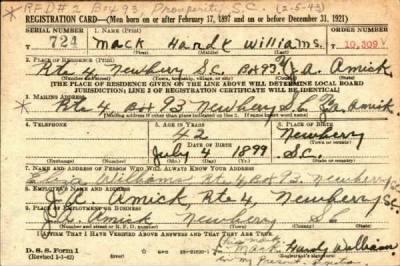 * RFD #2 Box 93, Prosperity, S.C. (2-5-43)
REGISTRATION CARD—(Men born on or after February 17, 1897 and on or before December 31, 1921)
SERIAL NUMBER 1. NAME (Print) ORDER NUMBER
T 724 Mack Hardy Williams. T 10,309
2. PLACE OF RESIDENCE (Print)
Rte 4 Newberry S.C. Box 93 % J.A. Amick
[THE PLACE OF RESIDENCE GIVEN ON THE LINE ABOVE WILL DETERMINE LOCAL BOARD
JURISDICTION; LINE 2 OF REGISTRATION CERTIFICATE WILL BE IDENTICAL]
3. MAILING ADDRESS
* Rte 4 Box 93 Newberry S.C. Amick.
4. TELEPHONE 5. AGE IN YEARS 6. PLACE OF BIRTH
42 Newberry
DATE OF BIRTH
July 4 1899 S.C.
7. NAME AND ADDRESS OF PERSON WHO WILL ALWAYS KNOW YOUR ADDRESS
Williams, Rte 4 Box 93, Newberry S.C.
8. EMPLOYER'S NAME AND ADDRESS
J.A. Amick, Rte 4, Newberry S.C.
9. PLACE OF EMPLOYMENT OR BUSINESS
J.A. Amick Newberry S.C.
I AFFIRM THAT I HAVE VERIFIED ABOVE ANSWERS AND THAT THEY ARE TRUE.
D. S. S. Form 1
(Revised 1-1-42) Mack Hardy Williams